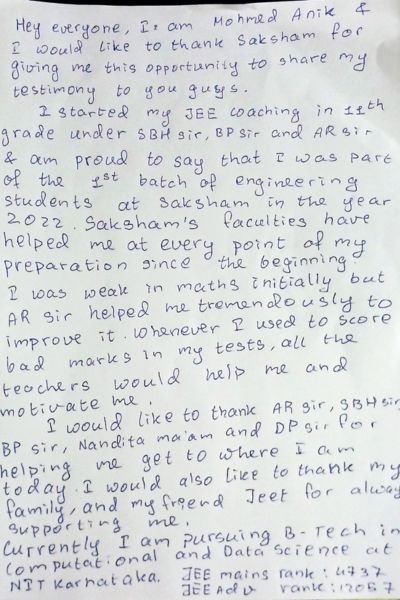 Hey everyone, I am Mohmed Anik &
I would like to thank Saksham for
giving me this opportunity to share my
testimony to you guys.
I started my JEE coaching in 11th
grade under SBH sir, BP sir and AR sir
& am proud to say that I was part
of the 1st batch of engineering
students at Saksham in the year
2022. Saksham's faculties have
helped me at every point of my
preparation since the beginning.
I was weak in maths initially but
AR sir helped me tremendously to
improve it. Whenever I used to score
bad marks in my tests, all the
teachers would help me and
motivate me.
I would like to thank AR sir, SBH sir
BP sir, Nandita ma'am and DP sir for
helping me get to where I am
today. I would also like to thank my
family, and my friend Jeet for alway
supporting me.
Currently I am pursuing B-Tech in
Computational and Data Science at
NIT Karnataka. JEE mains rank: 4737
JEE Adv rank: